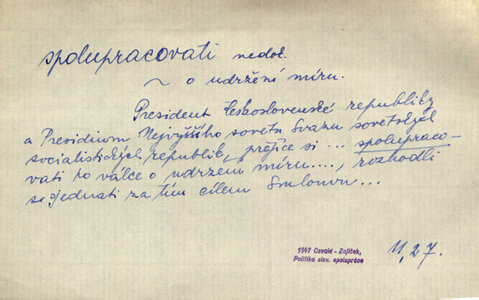 spolupracovati nedok.
~ o udržení míru.
President Československé republiky
a Presidium Nejvyššího sovětu Svazu sovětských
socialistických republik, přejíce si ... spolupraco-
vati po válce o udržení míru...., rozhodli
se sjednati za tím cílem Smlouvu...
1947 Czvalo - Zajíček,
Politika slov. spolupráce
II, 27.